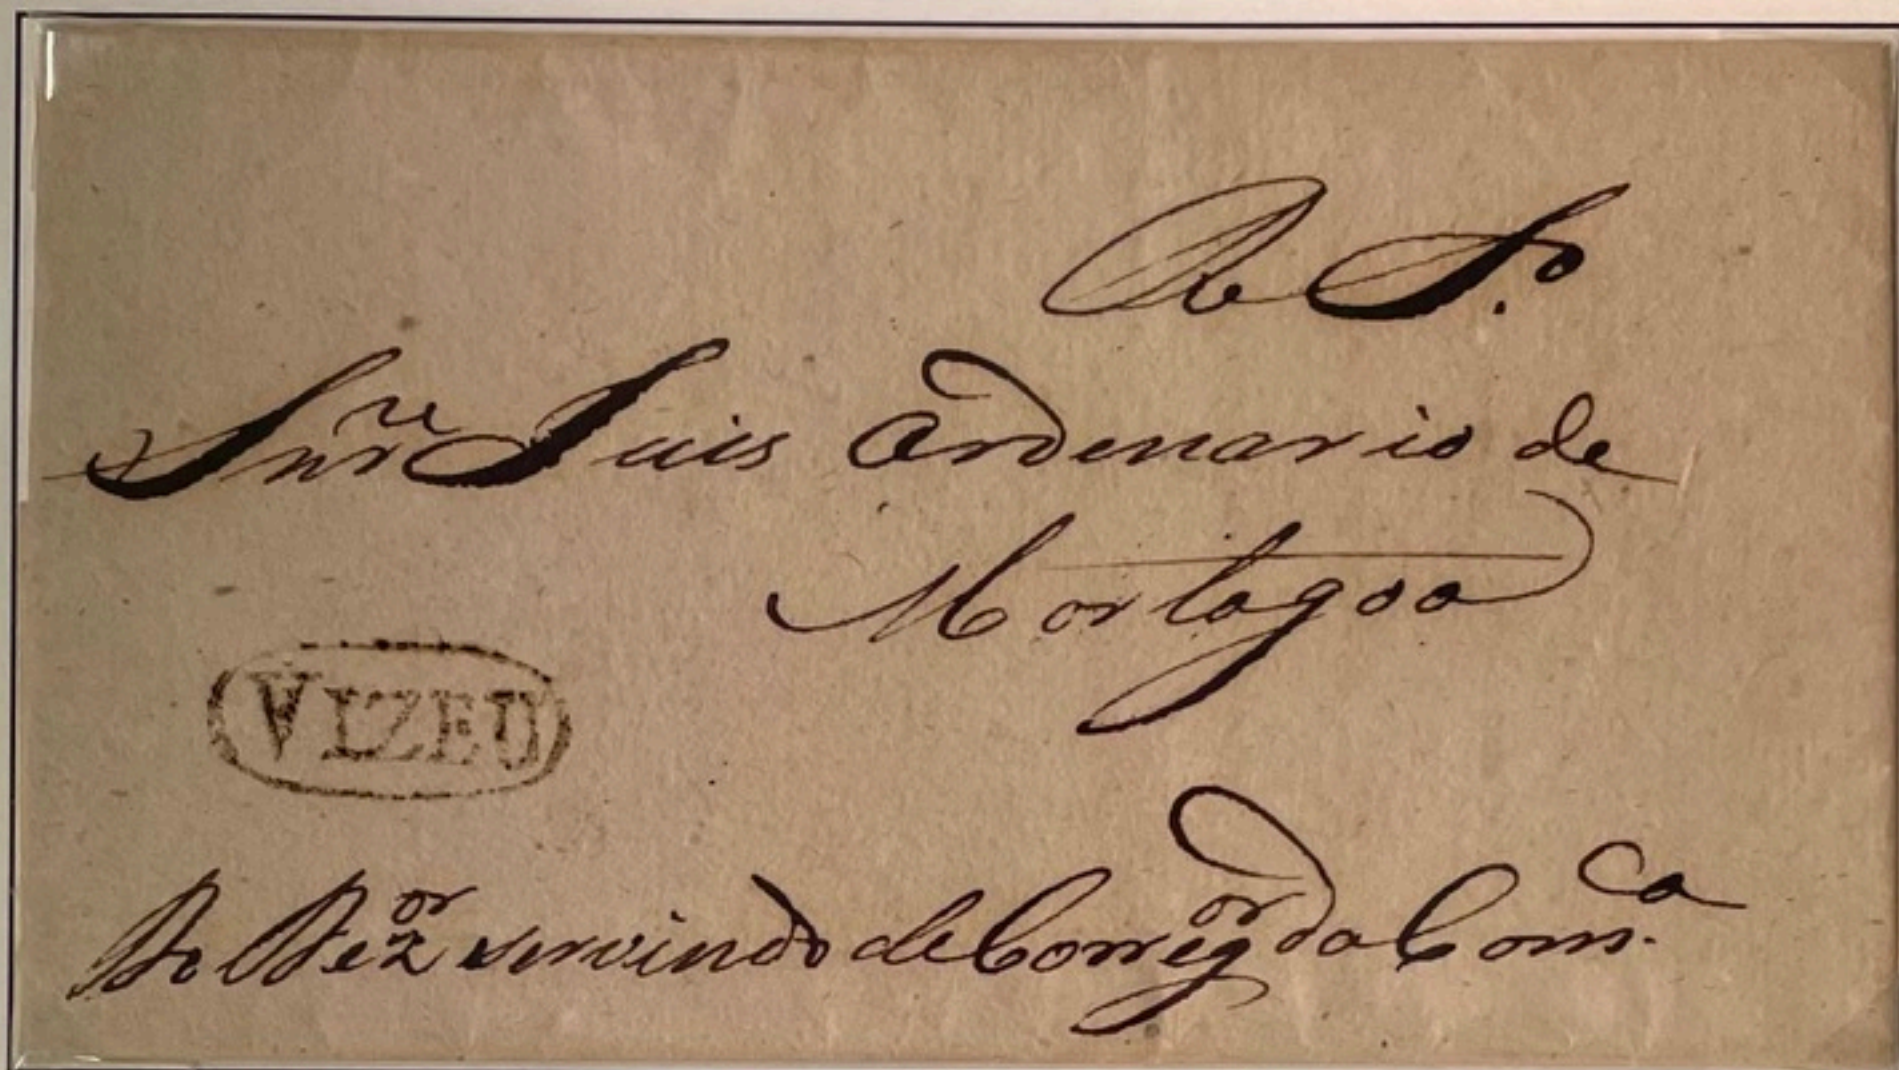 R. S.º
Snr.ᵉ Juis Ordenario de
Mortagoa
VIZEU
Do Vezᵒʳ servindo de Corregᵒʳ da Com.ᶜᵃ